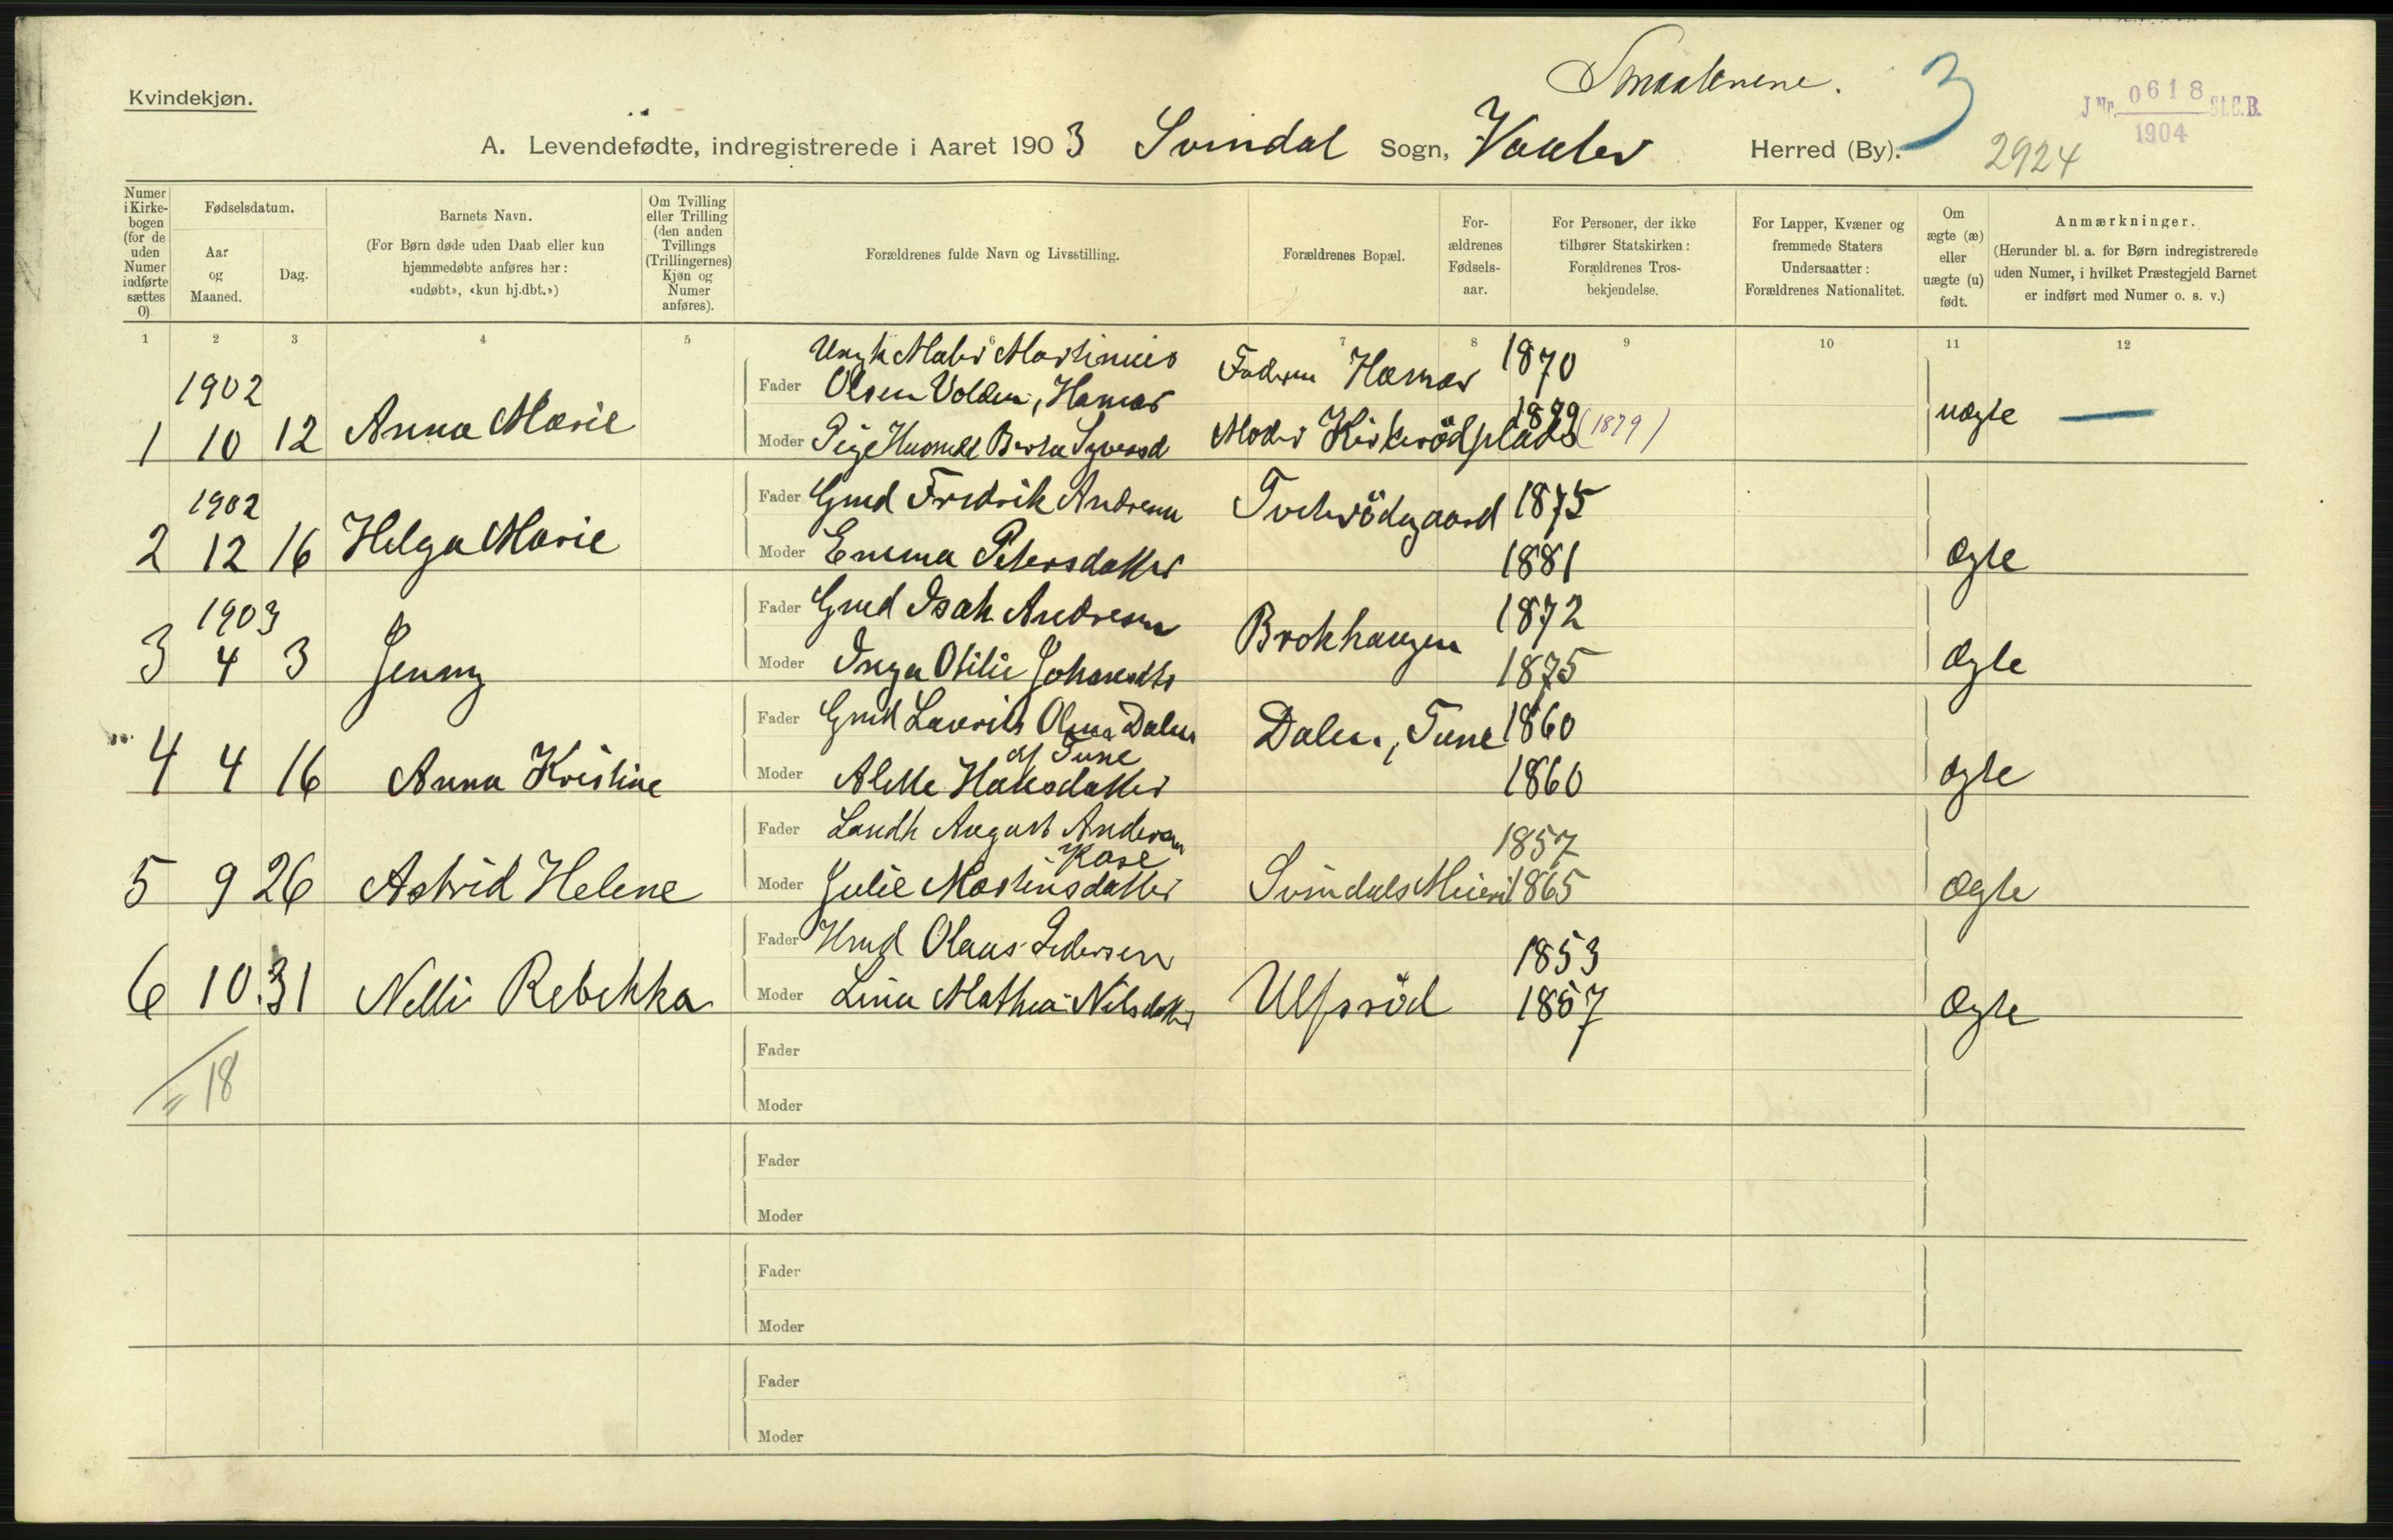 Smaalenene.
3
Kvindekjøn.
J Nr. 0618 St.C.B.
1904
2924
A. Levendefødte, indregistrerede i Aaret 1903 Svindal Sogn, Vaaler Herred (By).
Numer i Kirkebogen (for de uden Numer indførte sættes 0)
Fødselsdatum.
Aar og Maaned.
Dag.
Barnets Navn.
(For Børn døde uden Daab eller kun hjemmedøbte anføres her: «udøbt», «kun hj.dbt.»)
Om Tvilling eller Trilling (den anden Tvillings (Trillingernes) Kjøn og Numer anføres).
Forældrenes fulde Navn og Livsstilling.
Forældrenes Bopæl.
Forældrenes Fødselsaar.
For Personer, der ikke tilhører Statskirken: Forældrenes Trosbekjendelse.
For Lapper, Kvæner og fremmede Staters Undersaatter: Forældrenes Nationalitet.
Om ægte (æ) eller uægte (u) født.
Anmærkninger.
(Herunder bl. a. for Børn indregistrerede uden Numer, i hvilket Præstegjeld Barnet er indført med Numer o. s. v.)
1 2 3 4 5 6 7 8 9 10 11 12
Fader Ungk Maler Martinius Olsen Volden, Hamar Faderen Hamar 1870
1902
1 10 12 Anna Marie Moder Pige Berta Syversd Moder Kirkerödplads 1879 (1879) uægte —
1902 Fader Gmd Fredrik Andresen Tveterödegaard 1875
2 12 16 Helga Marie Moder Emma Petersdatter 1881 Ægte
1903 Fader Gmd Isak Andresen Brokhaugen 1872
3 4 3 Jenny Moder Inga Otilie Johansdtr 1875 Ægte
Fader Gmd Laurits Olsen Dalen af Tune Dalen, Tune 1860
4 4 16 Anna Kristine Moder Alette Hansdatter 1860 Ægte
Fader Landh August Andersen Kase 1857
5 9 26 Astrid Helene Moder Julie Martinsdatter Svindals Meieri 1865 Ægte
Fader Hmd Olaus Pedersen 1853
6 10. 31 Nelli Rebekka Moder Lina Mathea Nilsdatter Ulfsröd 1857 Ægte
18
Fader
Moder
Fader
Moder
Fader
Moder
Fader
Moder